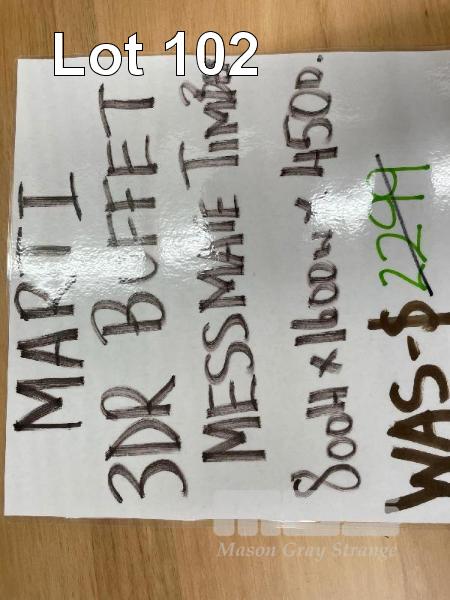 Lot 102
MARTI
3DR BUFFET
MESSMATE TIMBER
800H x 1600W x 450D.
WAS-$2299
Mason Gray Strange